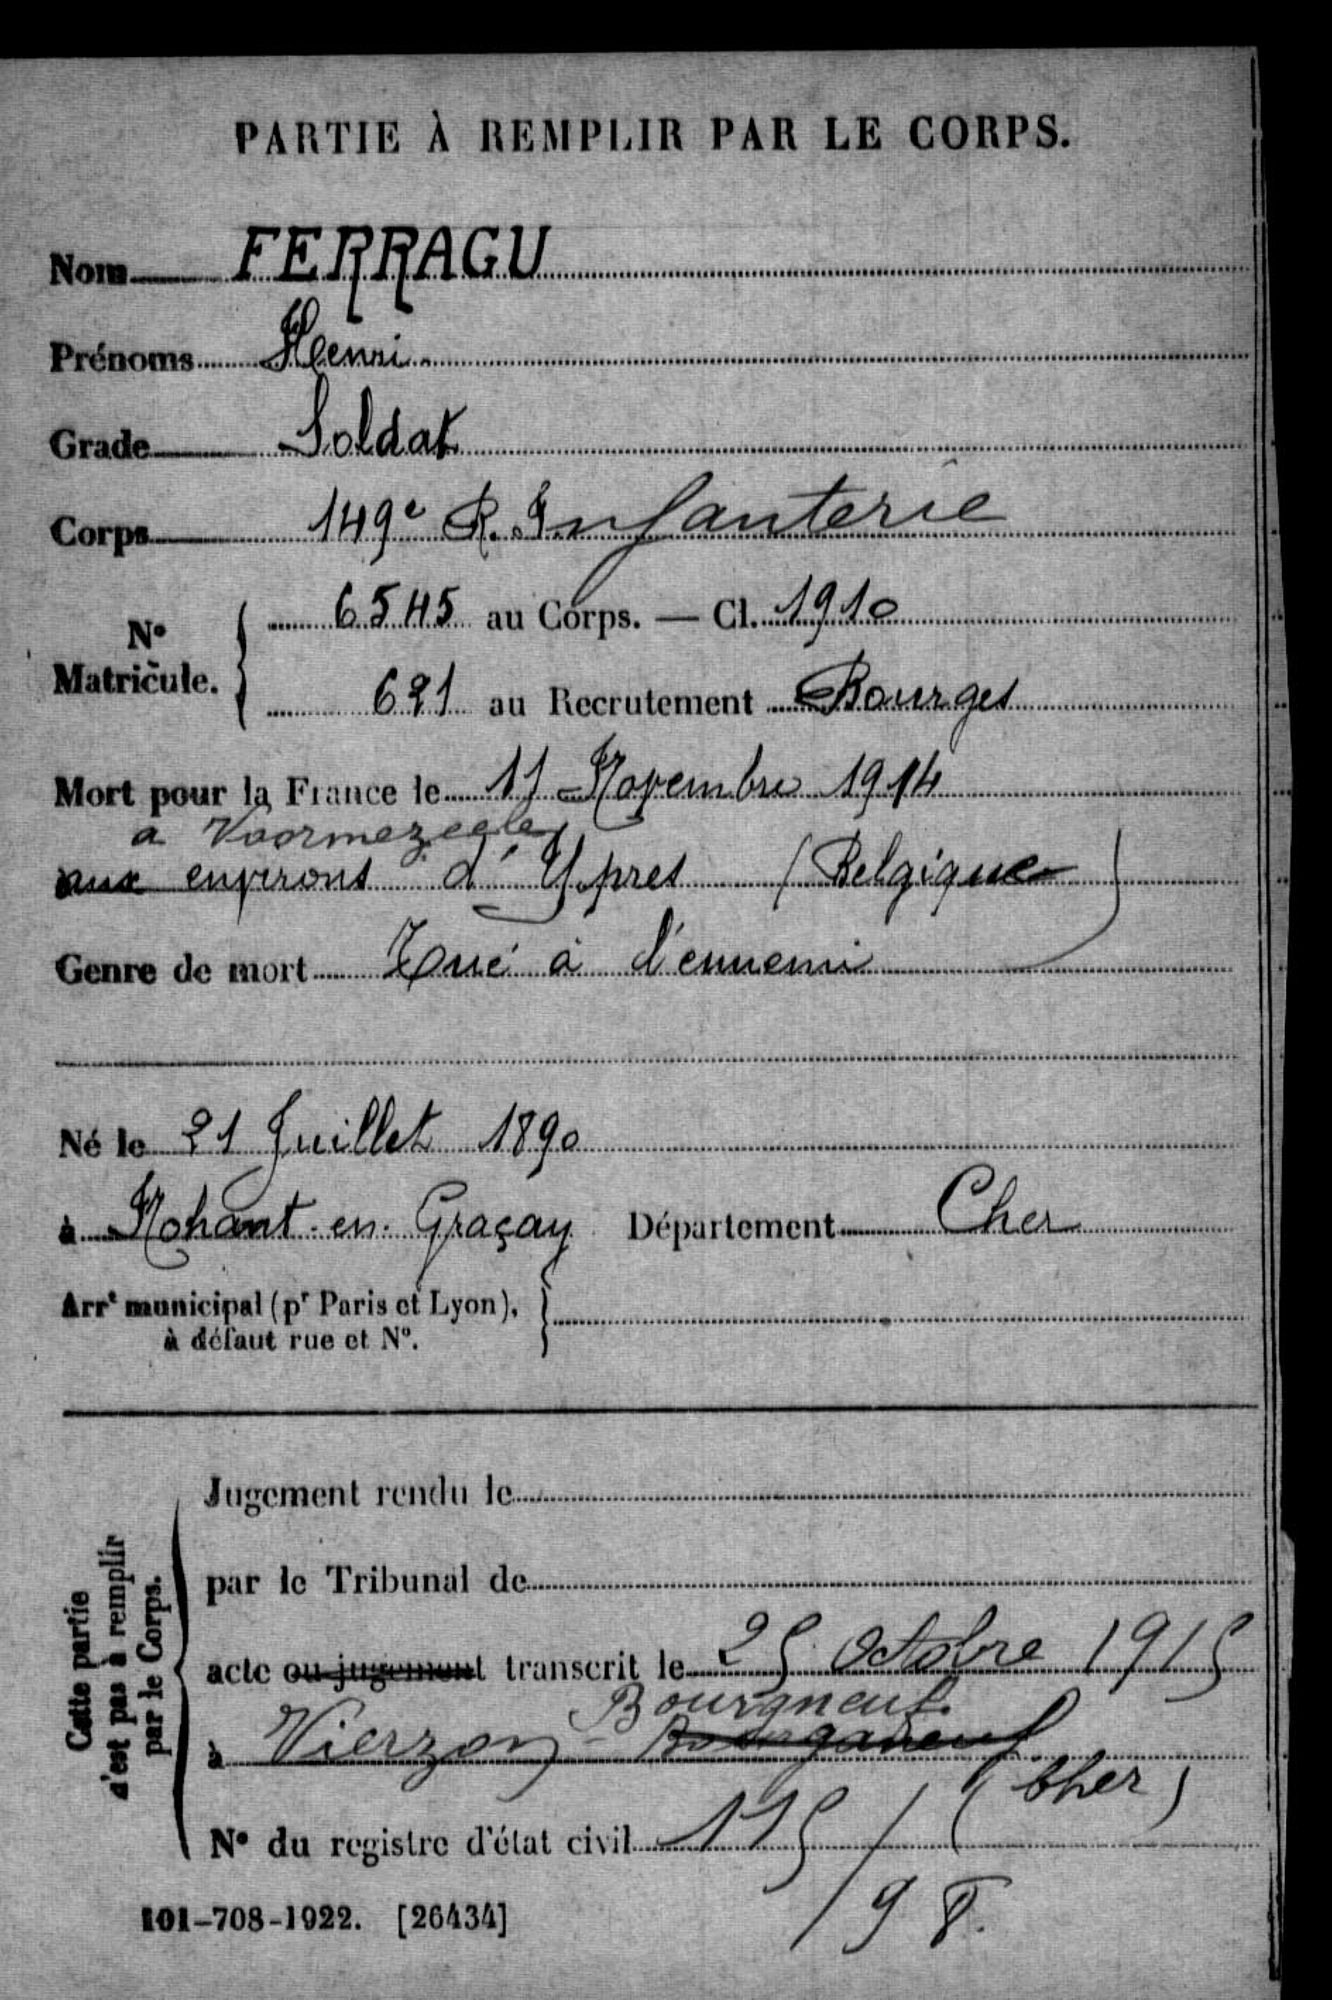 PARTIE À REMPLIR PAR LE CORPS.
Nom FERRAGU
Prénoms Henri
Grade Soldat
Corps 149e R. Infanterie
N° Matricule. 6545 au Corps. — Cl. 1910
621 au Recrutement Bourges
Mort pour la France le 11 Novembre 1914
a Voormezeele
aux environs d'Ypres (Belgique)
Genre de mort Tué à l'ennemi
Né le 21 Juillet 1890
à Nohant-en-Graçay Département Cher
Arrt municipal (pr Paris et Lyon),
à défaut rue et N°.
Cette partie
n'est pas à remplir
par le Corps.
Jugement rendu le
par le Tribunal de
acte ou jugement transcrit le 25 Octobre 1915
Bourgneuf
à Vierzon - Bourganeuf
(Cher)
N° du registre d'état civil 115/98.
101-708-1922. [26434]